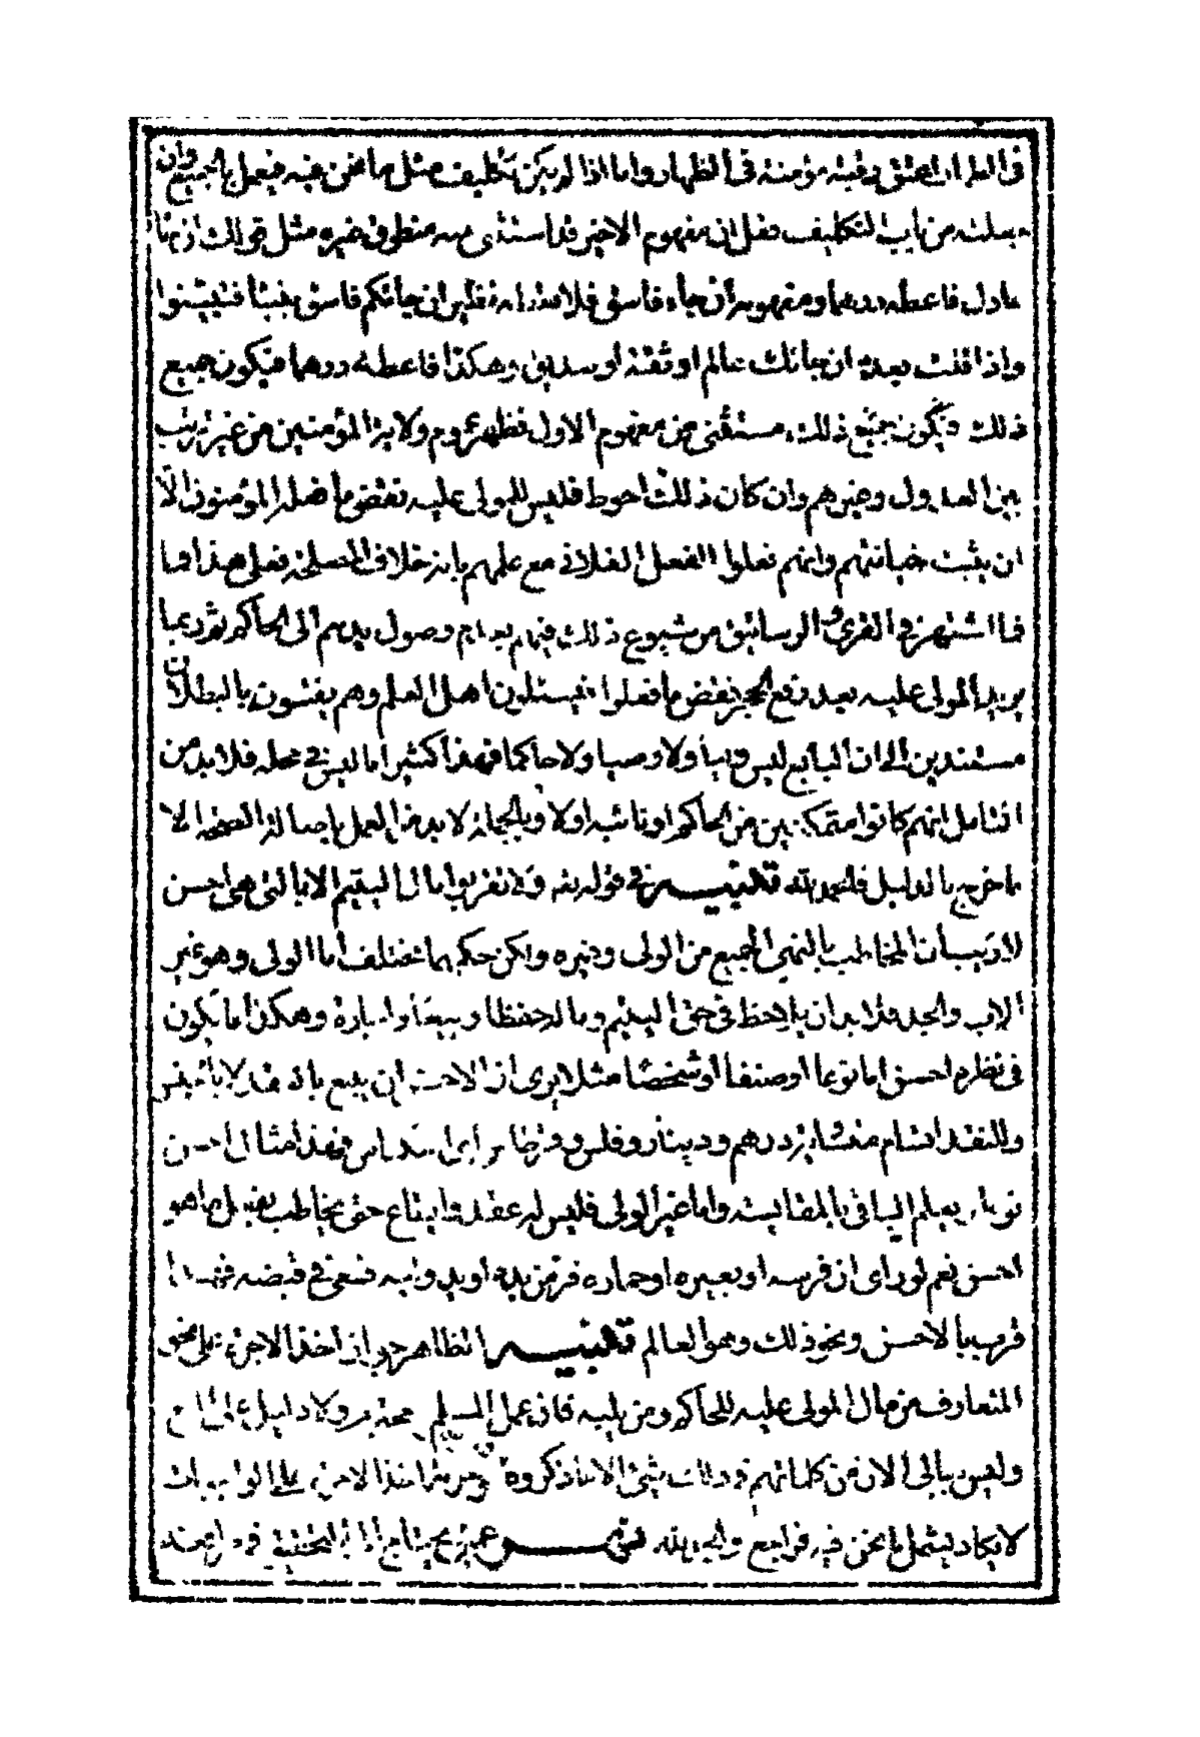 في الظهار اعتق رقبة مؤمنة في الظهار واما اذا لم يكن تكليف مثل ما نحن فيه فيعمل بالجميع وان
جعلته من باب التكليف فقل ان مفهوم الاخير قد استثنى منه منطوق غيره مثل قولك ان جاء
عادل فاعطه درهما ومفهومه ان جاء فاسق فلا نظير ان جائكم فاسق بنبأ فتبينوا
واذا قلت بعده ان جائك عالم او ثقة او صديق وهكذا فاعطه درهما فيكون جميع
ذلك فيكون جميع ذلك مستثنى من مفهوم الاول فظهر عموم ولاية المؤمنين من غير ترتيب
بين العدول وغيرهم وان كان ذلك احوط فليس للمولى عليه نقض ما فعله المؤمنون الا
ان يثبت خيانتهم وانهم فعلوا الفعل الفلاني مع علمهم بانه خلاف المصلحة فعلى هذا فما
فما اشتهر في القرى والرساتيق من شيوع ذلك فيهم بعدم وصول يدهم الى الحاكم ثم ربما
يريد المولى عليه بعد رفع الحجر نقض ما فعلوا فيسئلون اهل العلم وهم يفتون بالبطلان
مستندين الى ان البايع ليس وليا ولا وصيا ولا حاكما فهذا كثيرا ما ليس في محله فلا بد من
التامل انهم كانوا متمكنين من الحاكم او نائبه اولا وبالجملة لا بد من العمل باصالة الصحة الا
ما خرج بالدليل فالحمد لله تنبيه في قوله تعالى ولا تقربوا مال اليتيم الا بالتي هي احسن
لا ريب ان المخاطب بالنهي الجميع من الولى وغيره ولكن حكمهما مختلف اما الولى وهو غير
الاب والجد فلا بد ان يلاحظ في حق اليتيم وماله حفظا وبيعا واجارة وهكذا ما يكون
في نظره احسن اما نوعا او صنفا او شخصا مثلا يرى ان الاحسن ان يبيع ماله نقدا لا بالنسية
وللنقد اقسام منشاء درهم ودينار وفلس فهذا مثال احسن
نوعا يعلم الباقي بالمقايسة واما غير الولى فليس له عقد وايقاع حتى يخاطب بفعل ما هو
احسن نعم لو راى ان فرسه او بعيره او حماره فر من يده او يد وليه فسعى في قبضه فهذا
قرب بالاحسن ونحو ذلك وهو العالم تنبيه الظاهر جواز اخذ الاجرة على نحو
المتعارف من مال المولى عليه للحاكم ومن يليه فان عمل المسلم محترم ولا دليل على المنع
وليس ببالي الان من كلماتهم في ذلك شيئ الا ما ذكروه من حرمة اخذ الاجرة على الواجبات
لا يكاد يشمل ما نحن فيه فراجع والحمد لله